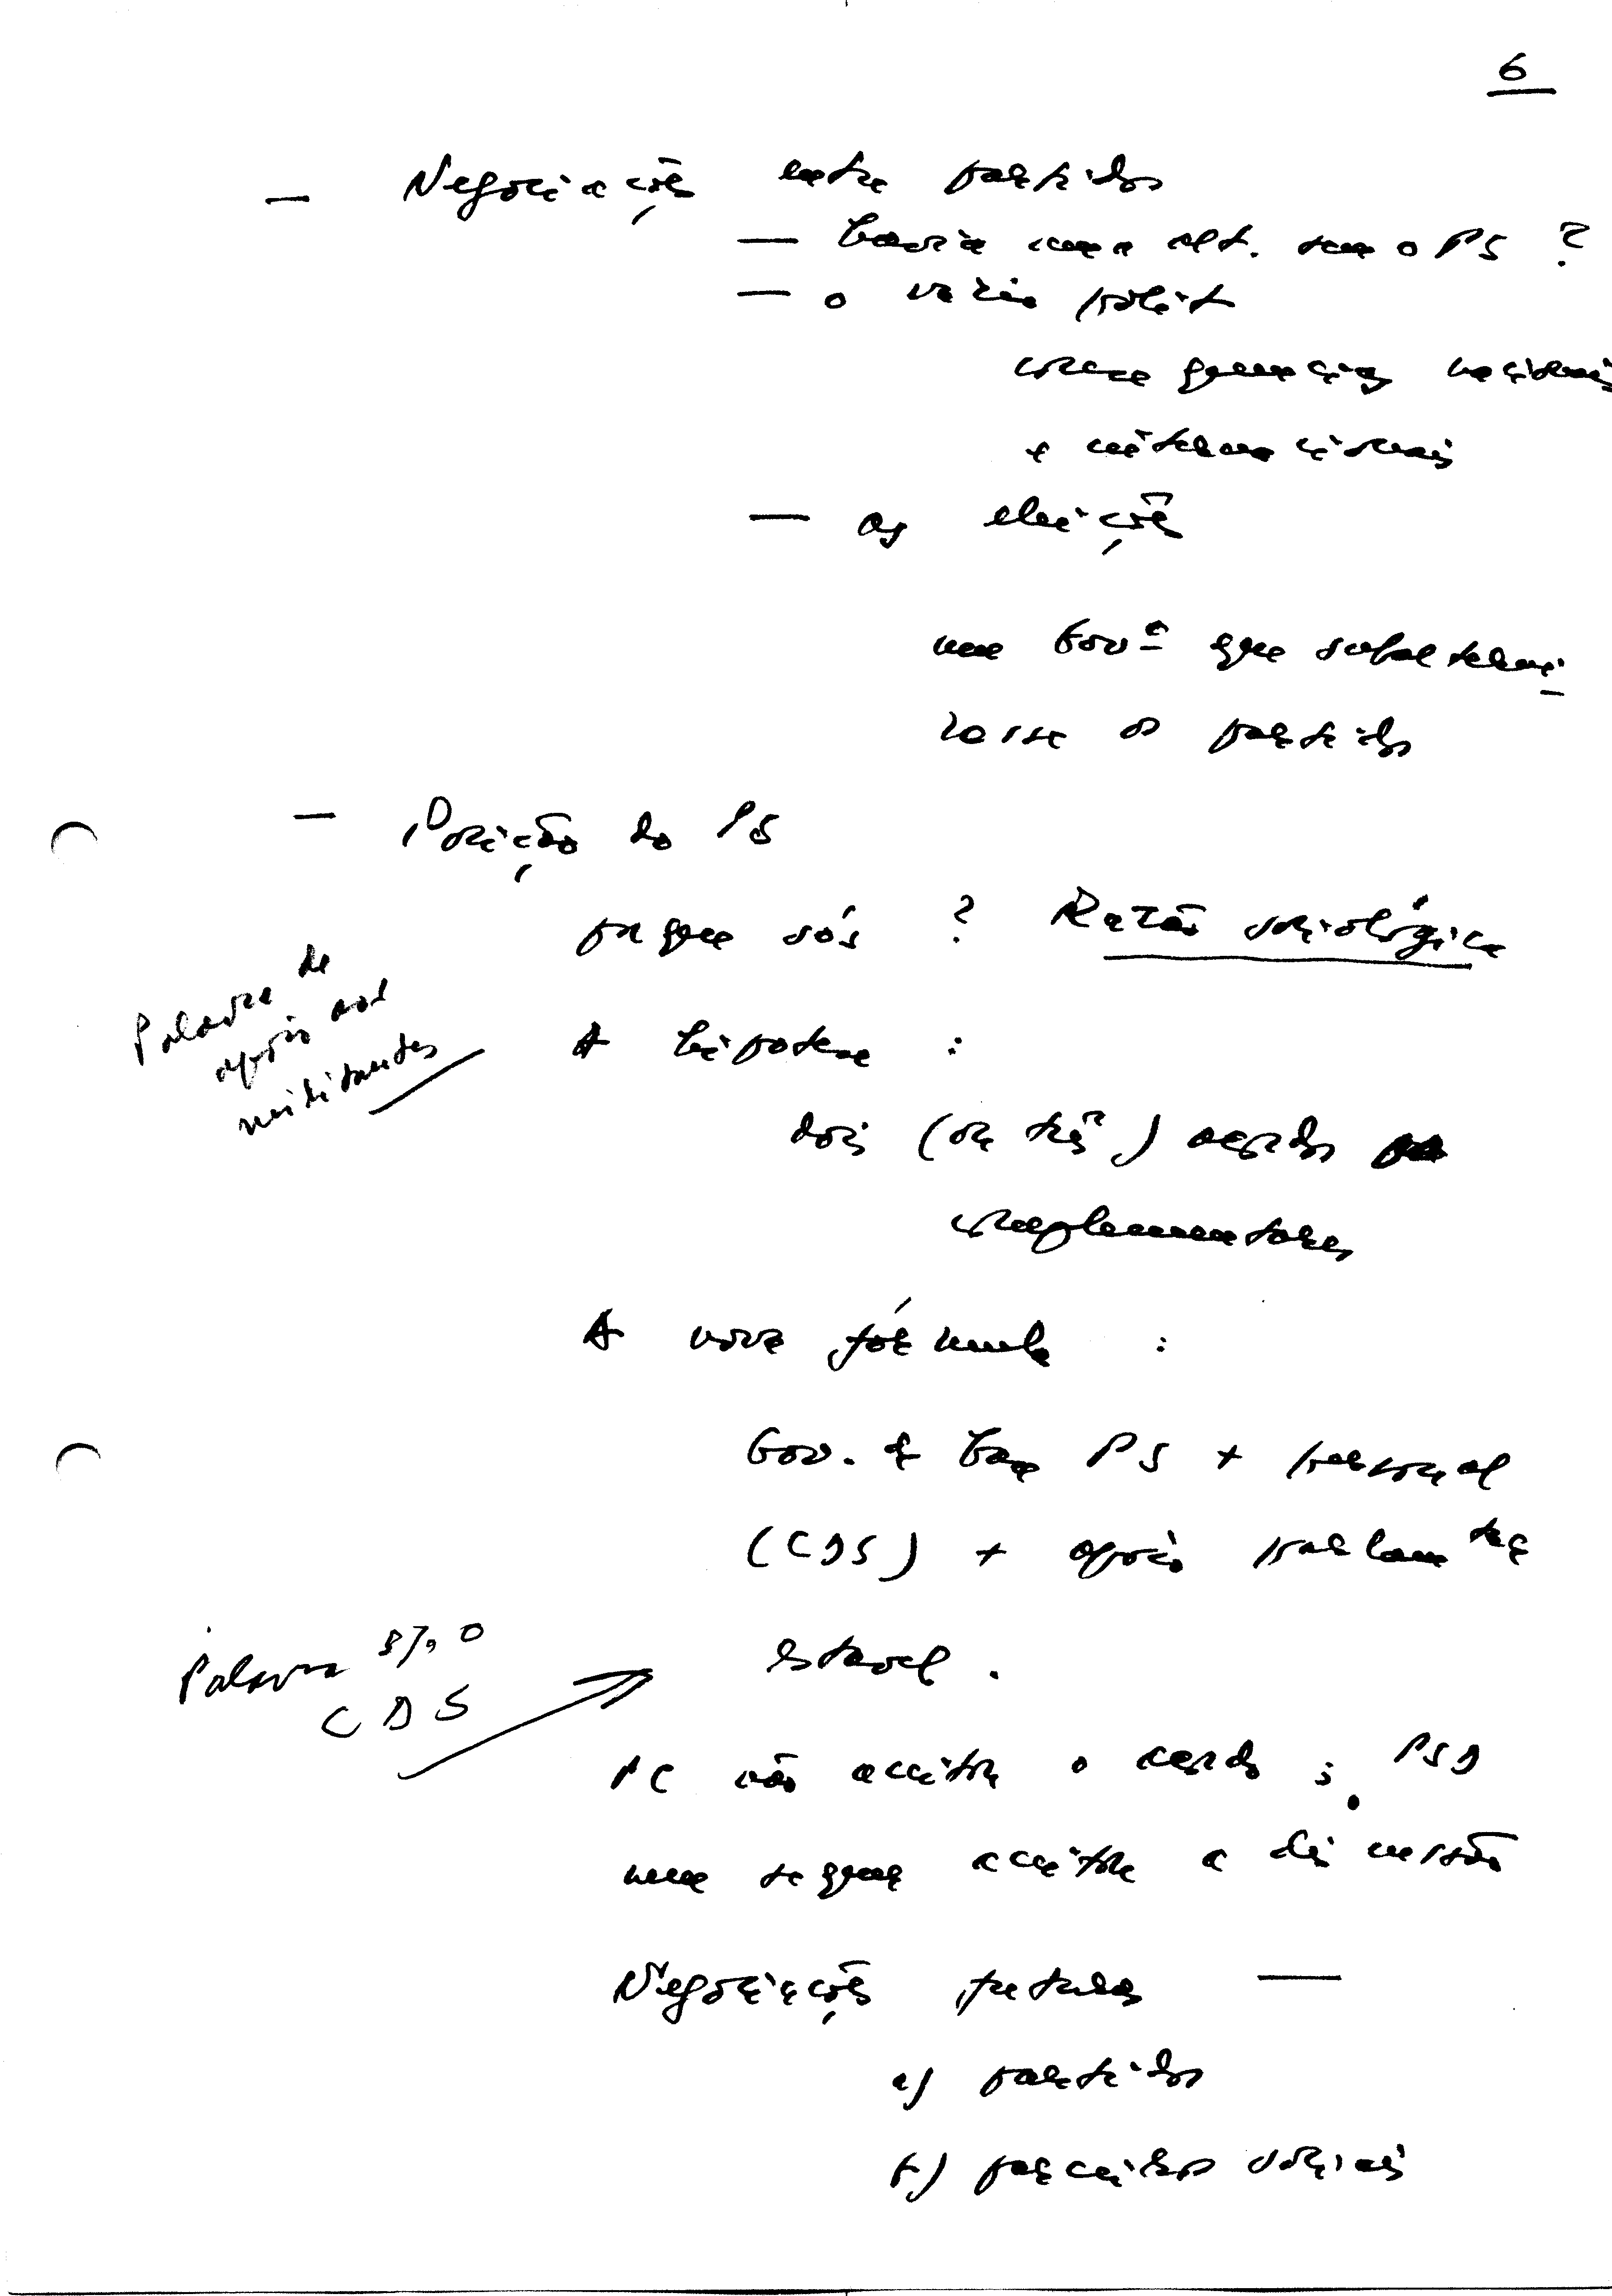 6
— Negociações entre partidos
— havia uma alt. sem o PS ?
— o vazio polít
consequências nacionais
e internacionais
— as eleições
um Govº que subalterni-
zasse os partidos
— Posição do PS
pq que sós ? Razão sociológica
Palavra de
apoio aos
militantes
A hipótese :
dois (ou três) acordos
complementares
A nova fórmula :
Gov. de base PS + personal
(CDS) + apoio parlamtar
estável .
Palavra s/ o
CDS
PC não aceitou o acordo ; PSD
nem sequer aceitou a discussão
Negociações futuras —
a) partidos
b) parceiros sociais